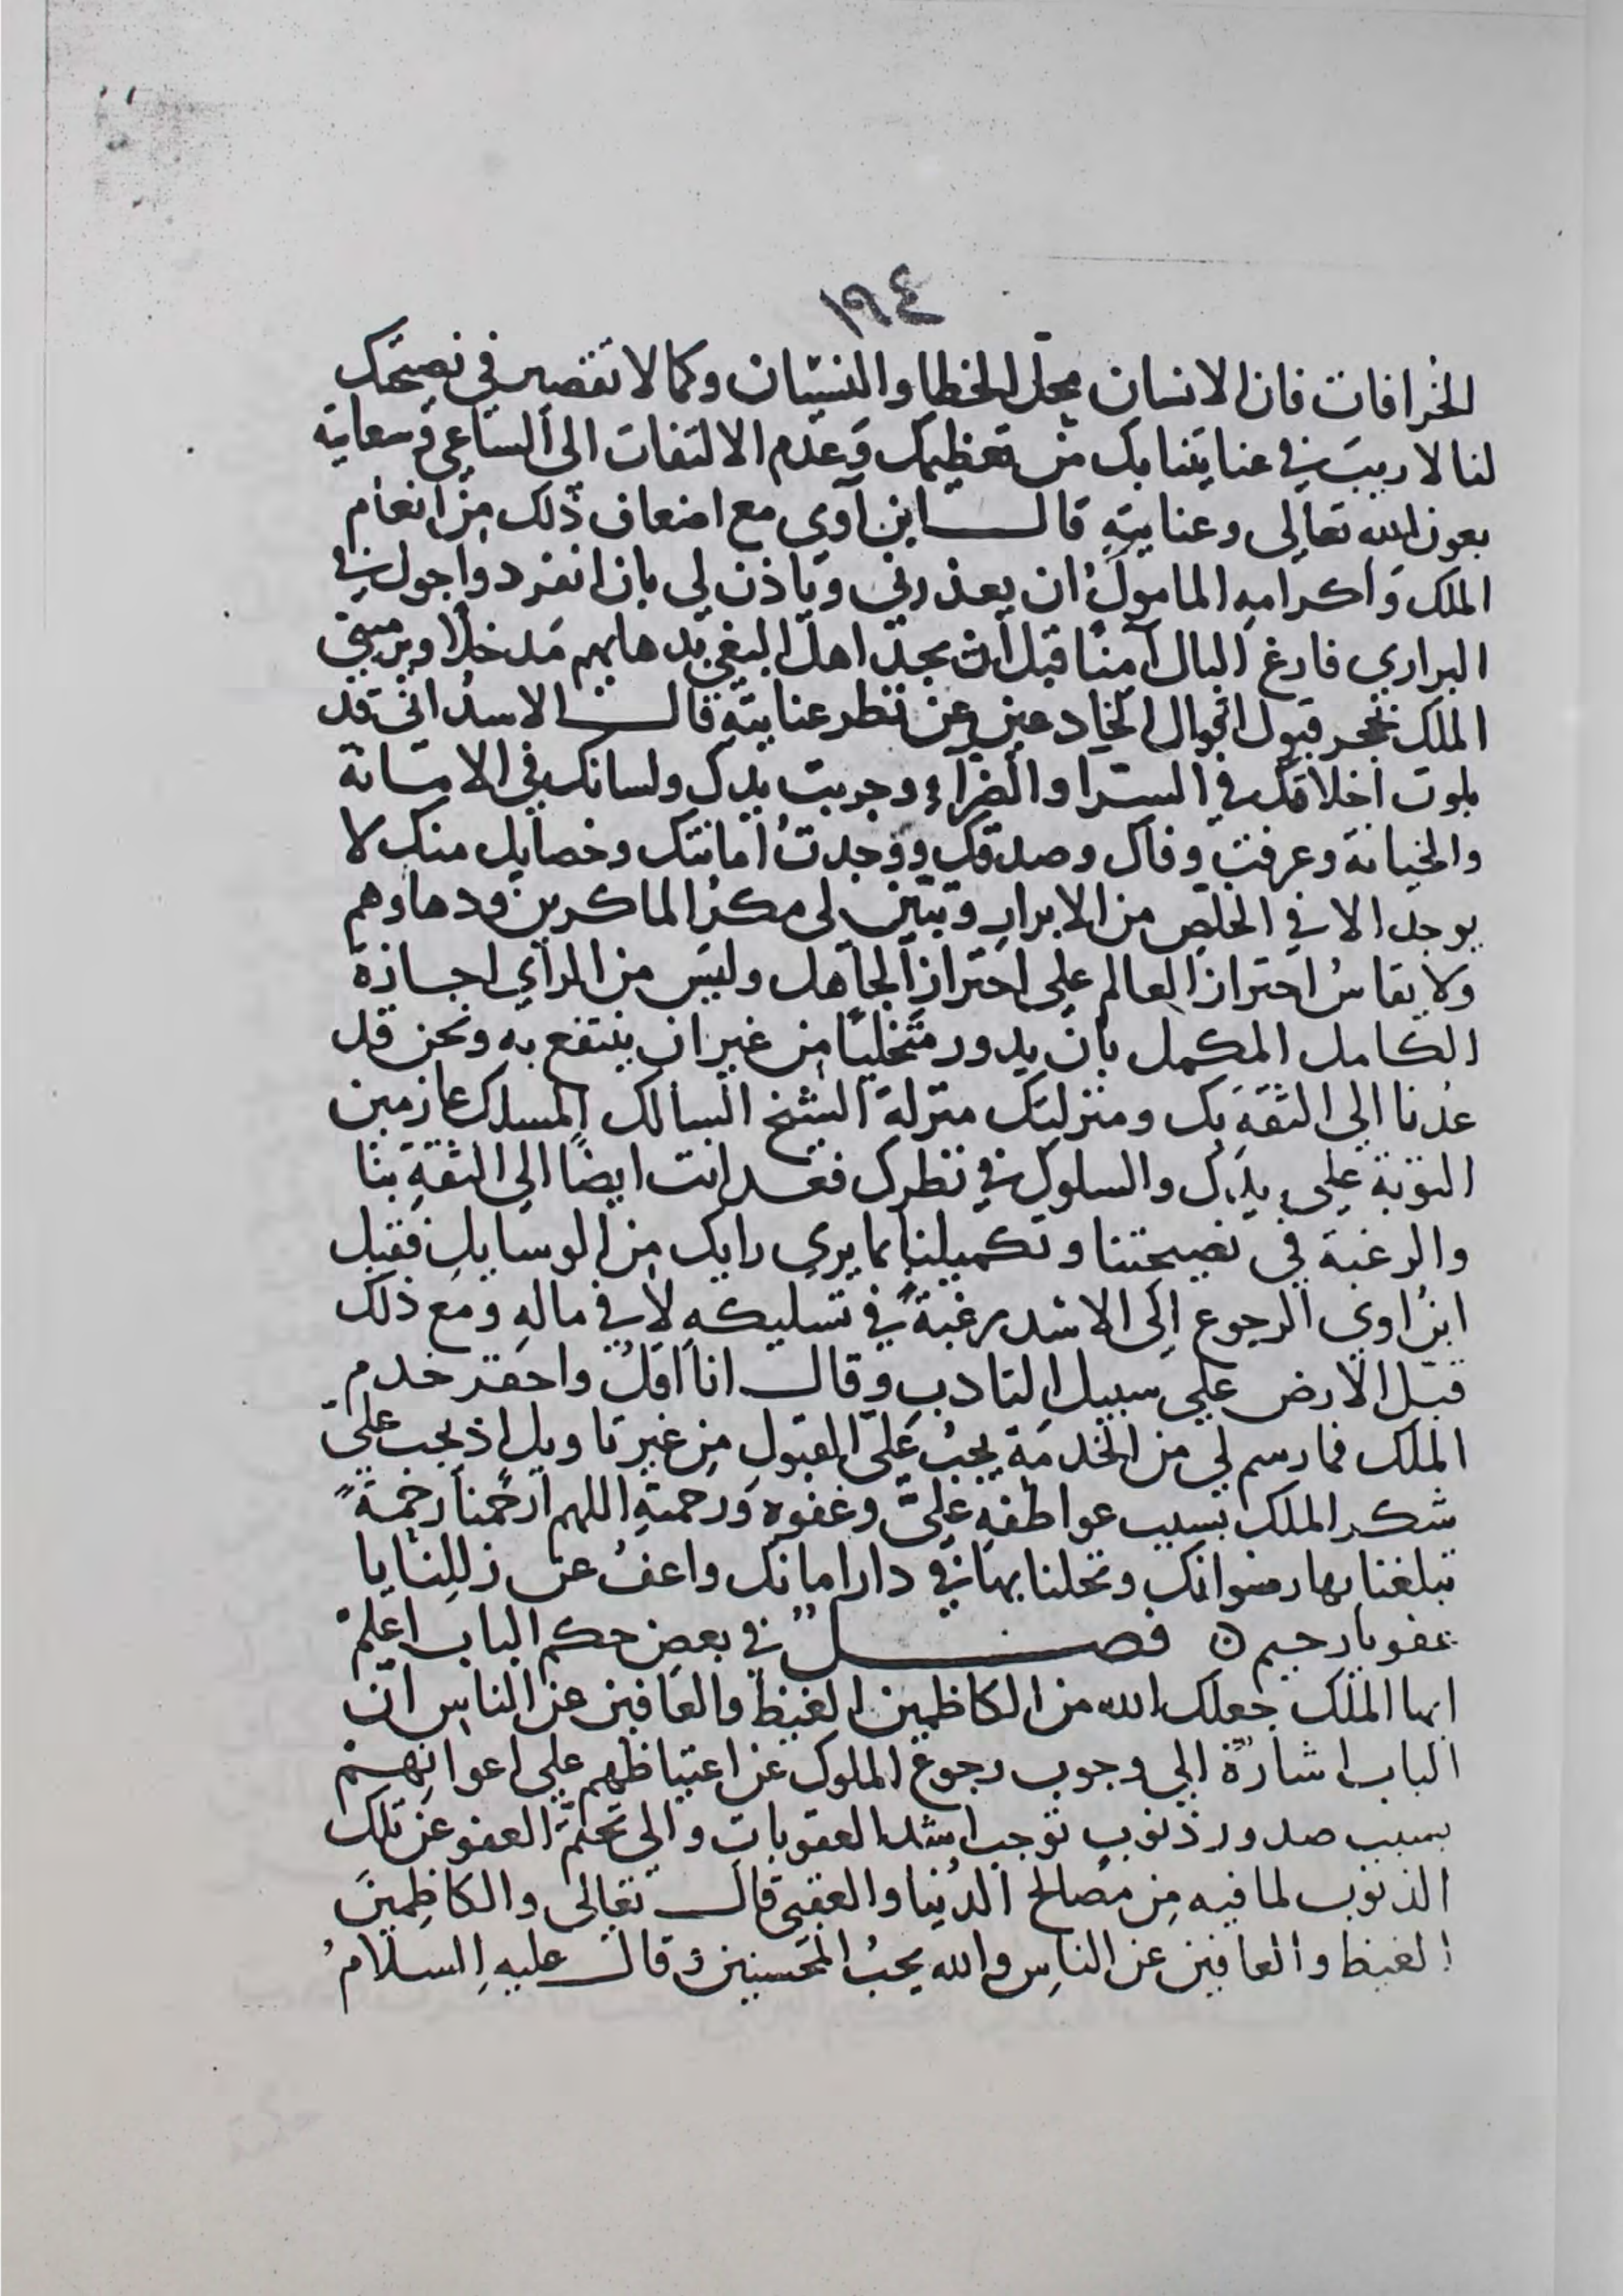 ١٩٤
الخرافات فان الانسان محلّ الخطا والنسيان وكما لا تقصير في نصيحتك
لنا لا ريبَ في عنايتنا بك من تعظيمك وَعدم الالتفات الى الساعي وَسعايته
بعون الله تعالى وعنايتهِ قال ابن آوي مع اضعاف ذلك مِنْ انعام
الملك وَاكرامهِ المامولُ ان يعذرني وياذن لي بان انفرد واجول في
البراري فارغ البال آمنًا قبل ان يجد اهل البغي بدهايهم مَدخلًا ويرميني
الملك بحجر قبول اقوال الخادعين عن نظر عنايتهِ قال الاسدُ اني قد
بلوت اخلاقك في السرا والضرآء وجربت يدك ولسانك في الامانة
والخيانة وعرفت وفاك وصدقك ووَجدتُ امانتك وخصايل منك لا
يوجد الا في الخليص من الابرارِ وتبين لى مكرُ الماكرين ودهاوهم
ولا يقاسُ احتراز العالم على احترازِ الجاهل وليَس من الرأي اجازة
الكامل المكمل بان يدور متخليًا مِن غير ان ينتفع به ونحن قد
عُدنا الى الثقةِ بك ومنزلتك منزلةَ الشيخ السالك المسلك عازمين
التوبة على يدِك والسلوك في نظرك فعد انت ايضًا الى الثقةِ بنا
والرغبة في نصيحتنا وتكميلنا بما يرى رايك مِن الوسايلِ فقبل
ابنُ اوي الرجوع اِلى الاسد رغبةً في تسليكهِ لا في مالهِ ومع ذلك
قبّل الارض على سبيل التادبِ وقال انا اقلُ واحقر خدم
الملك فما رسم لي من الخدمَة يجبُ عَليّ القبول مِن غير تاويل اذ يجب عليّ
شكر الملك بسبب عواطفهِ عليَّ وعفوه وَرحمتهِ اللهم ارحمنا رحمةً
تبلغنا بها رضوانك وتحلنا بها في دار امانك واعفُ عن زللنا يا
عفو يا رحيم ه فصل في بعض حكم الباب اعلمْ
ايها الملك جعلك الله من الكاظمين الغيظ والعافين عن الناس ان
الباب اشارةٌ الى وجوب رجوع الملوك عن اغتياظهم على اعوانهمْ
بسبب صدور ذنوبٍ توجب اشد العقوباتِ والى تحتّمَ العفو عن تلك
الذنوب لما فيه مِن مصالح الدُنيا والعقبى قال تعالى والكاظِمينَ
الغيظ والعافين عن الناسِ والله يحبُ المحسنين وقال عليهِ السلامُ